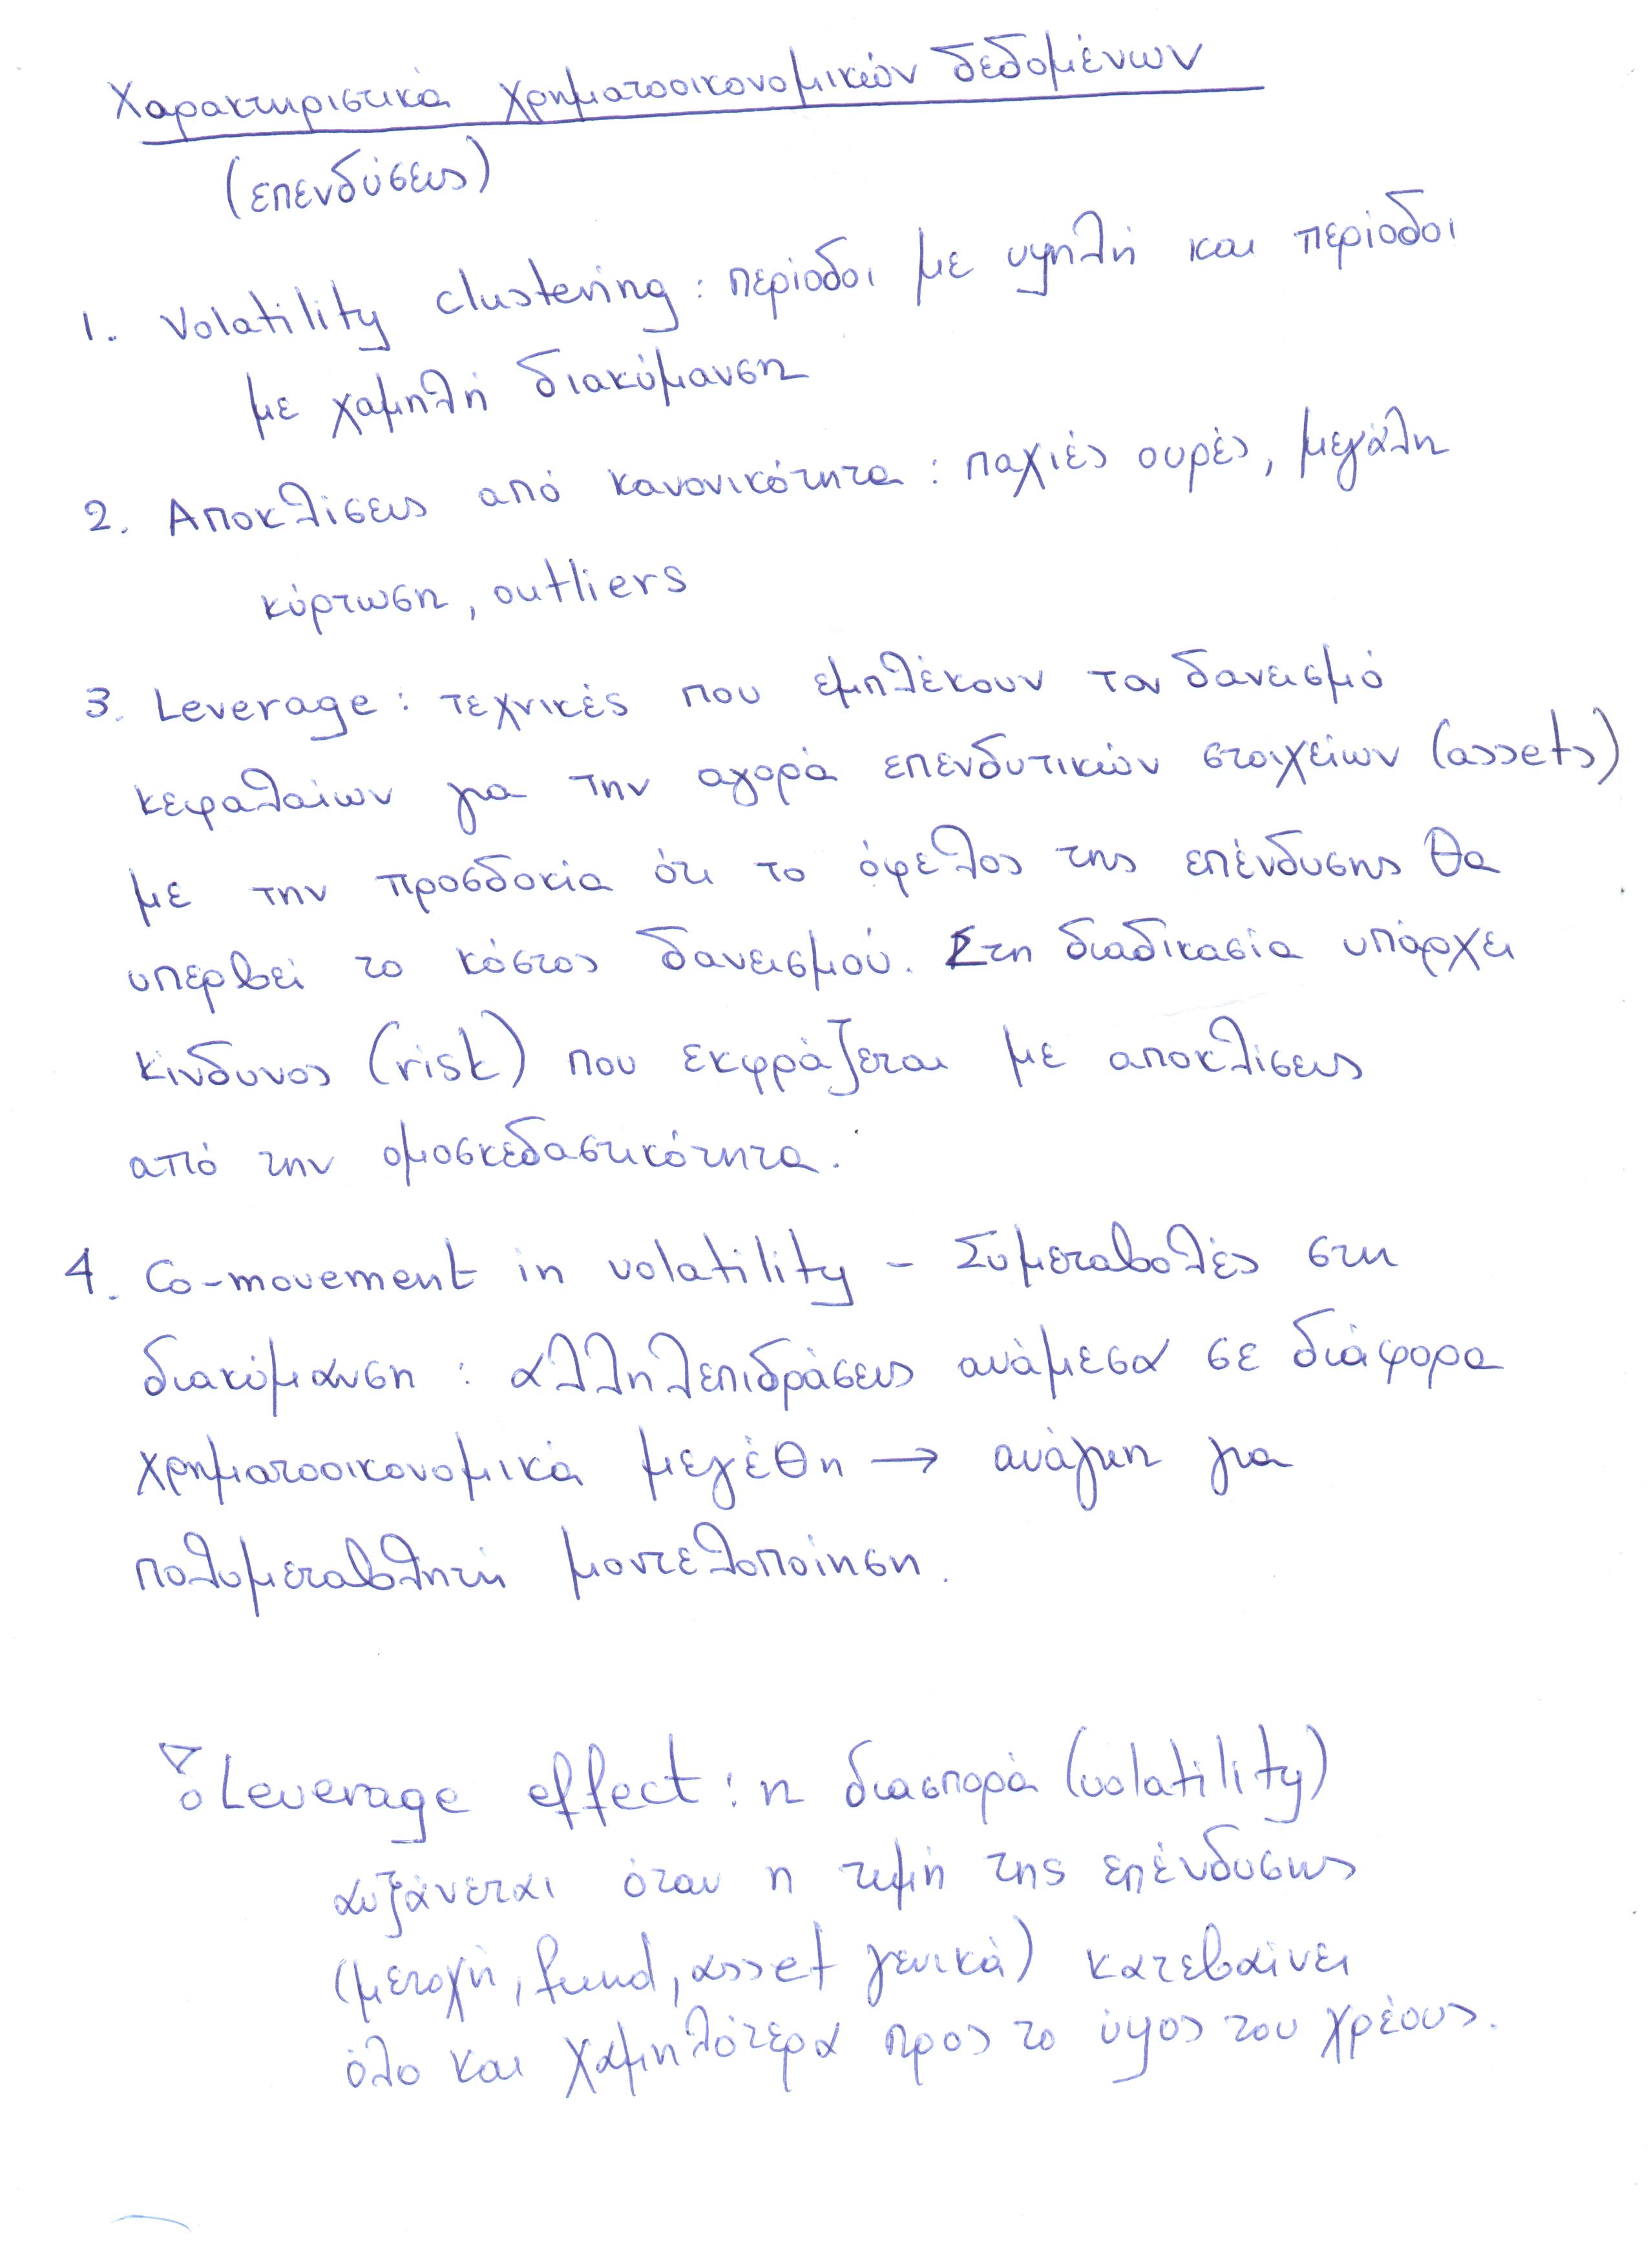 Χαρακτηριστικά χρηματοοικονομικών δεδομένων
(επενδύσεις)
1. Volatility clustering : περίοδοι με υψηλή και περίοδοι
με χαμηλή διακύμανση
2. Αποκλίσεις από κανονικότητα : παχιές ουρές, μεγάλη
κύρτωση, outliers
3. Leverage : τεχνικές που εμπλέκουν τον δανεισμό
κεφαλαίων για την αγορά επενδυτικών στοιχείων (assets)
με την προσδοκία ότι το όφελος της επένδυσης θα
υπερβεί το κόστος δανεισμού. Στη διαδικασία υπάρχει
κίνδυνος (risk) που εκφράζεται με αποκλίσεις
από την ομοσκεδαστικότητα.
4. Co-movement in volatility - Συμεταβολές στη
διακύμανση : αλληλεπιδράσεις ανάμεσα σε διάφορα
χρηματοοικονομικά μεγέθη → ανάγκη για
πολυμεταβλητή μοντελοποίηση.
Leverage effect : η διασπορά (volatility)
αυξάνεται όταν η τιμή της επένδυσης
(μετοχή, fund, asset γενικά) κατεβαίνει
όλο και χαμηλότερα προς το ύψος του χρέους.